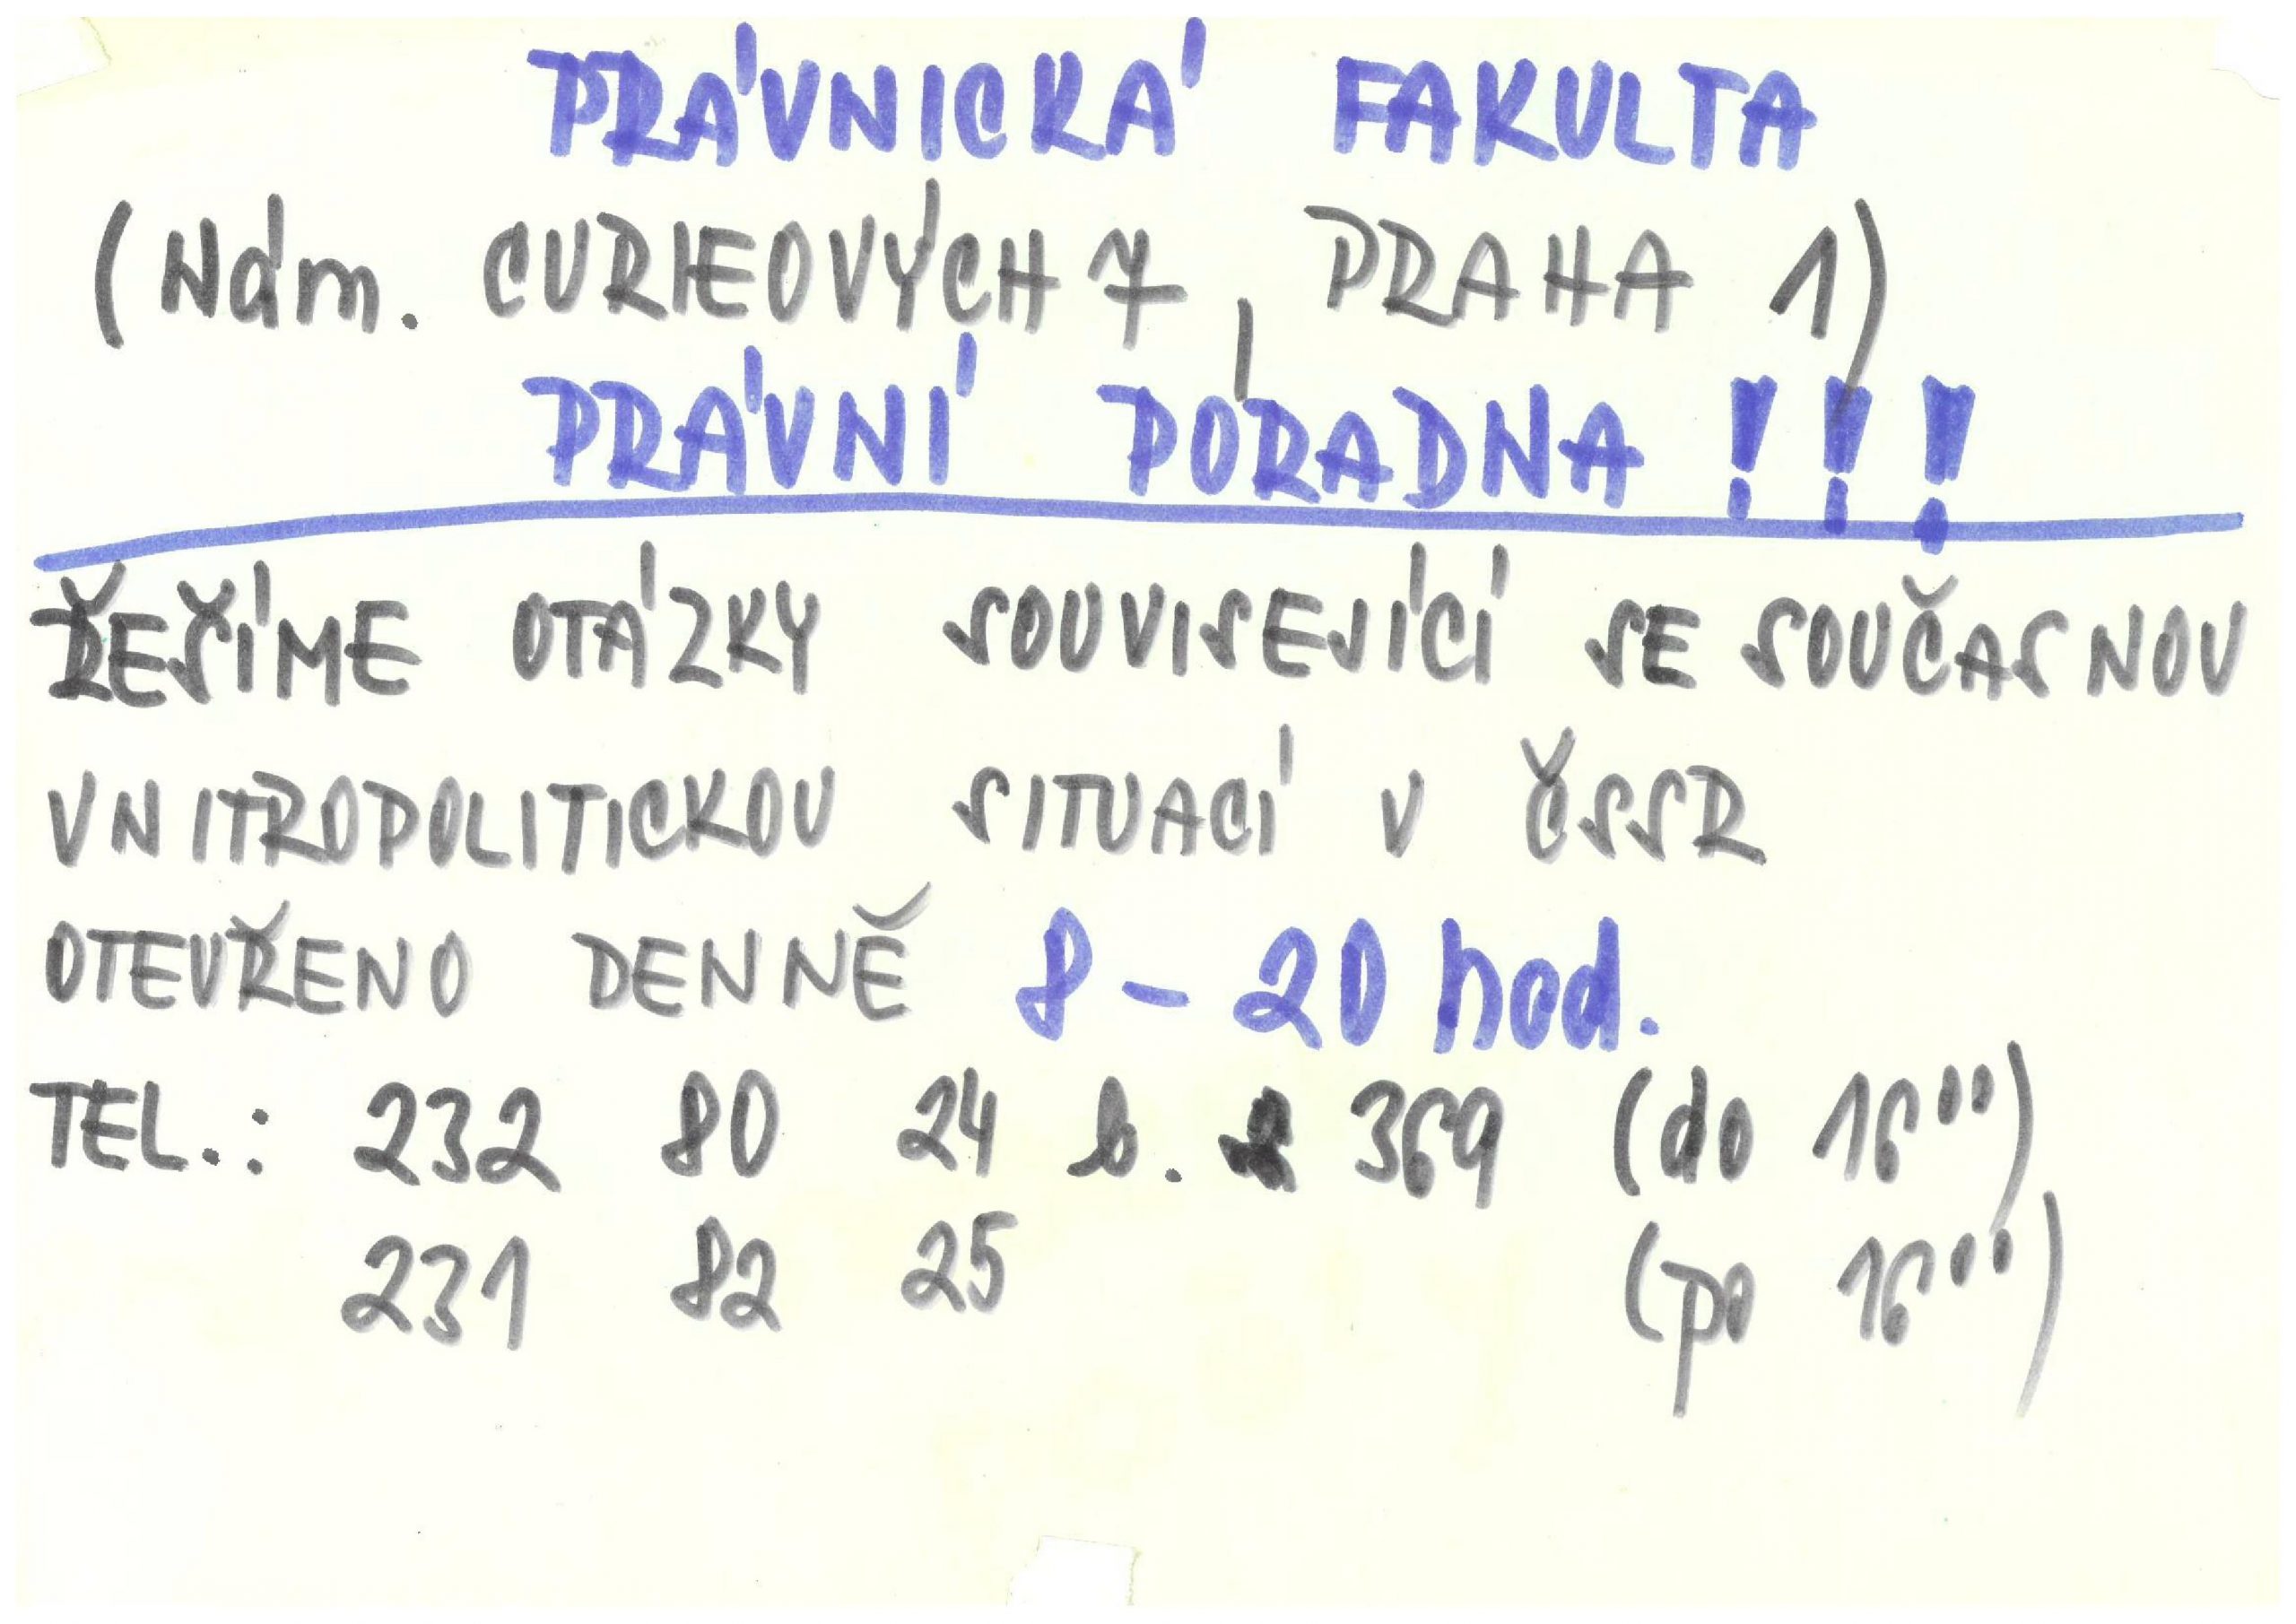 PRÁVNICKÁ FAKULTA
(Nám. CURIEOVÝCH 7, PRAHA 1)
PRÁVNÍ PORADNA !!!
ŘEŠÍME OTÁZKY SOUVISEJÍCÍ SE SOUČASNOU
VNITROPOLITICKOU SITUACÍ V ČSSR
OTEVŘENO DENNĚ 8 - 20 hod.
TEL.: 232 80 24 b. 369 (do 16⁰⁰)
231 82 25 (po 16⁰⁰)